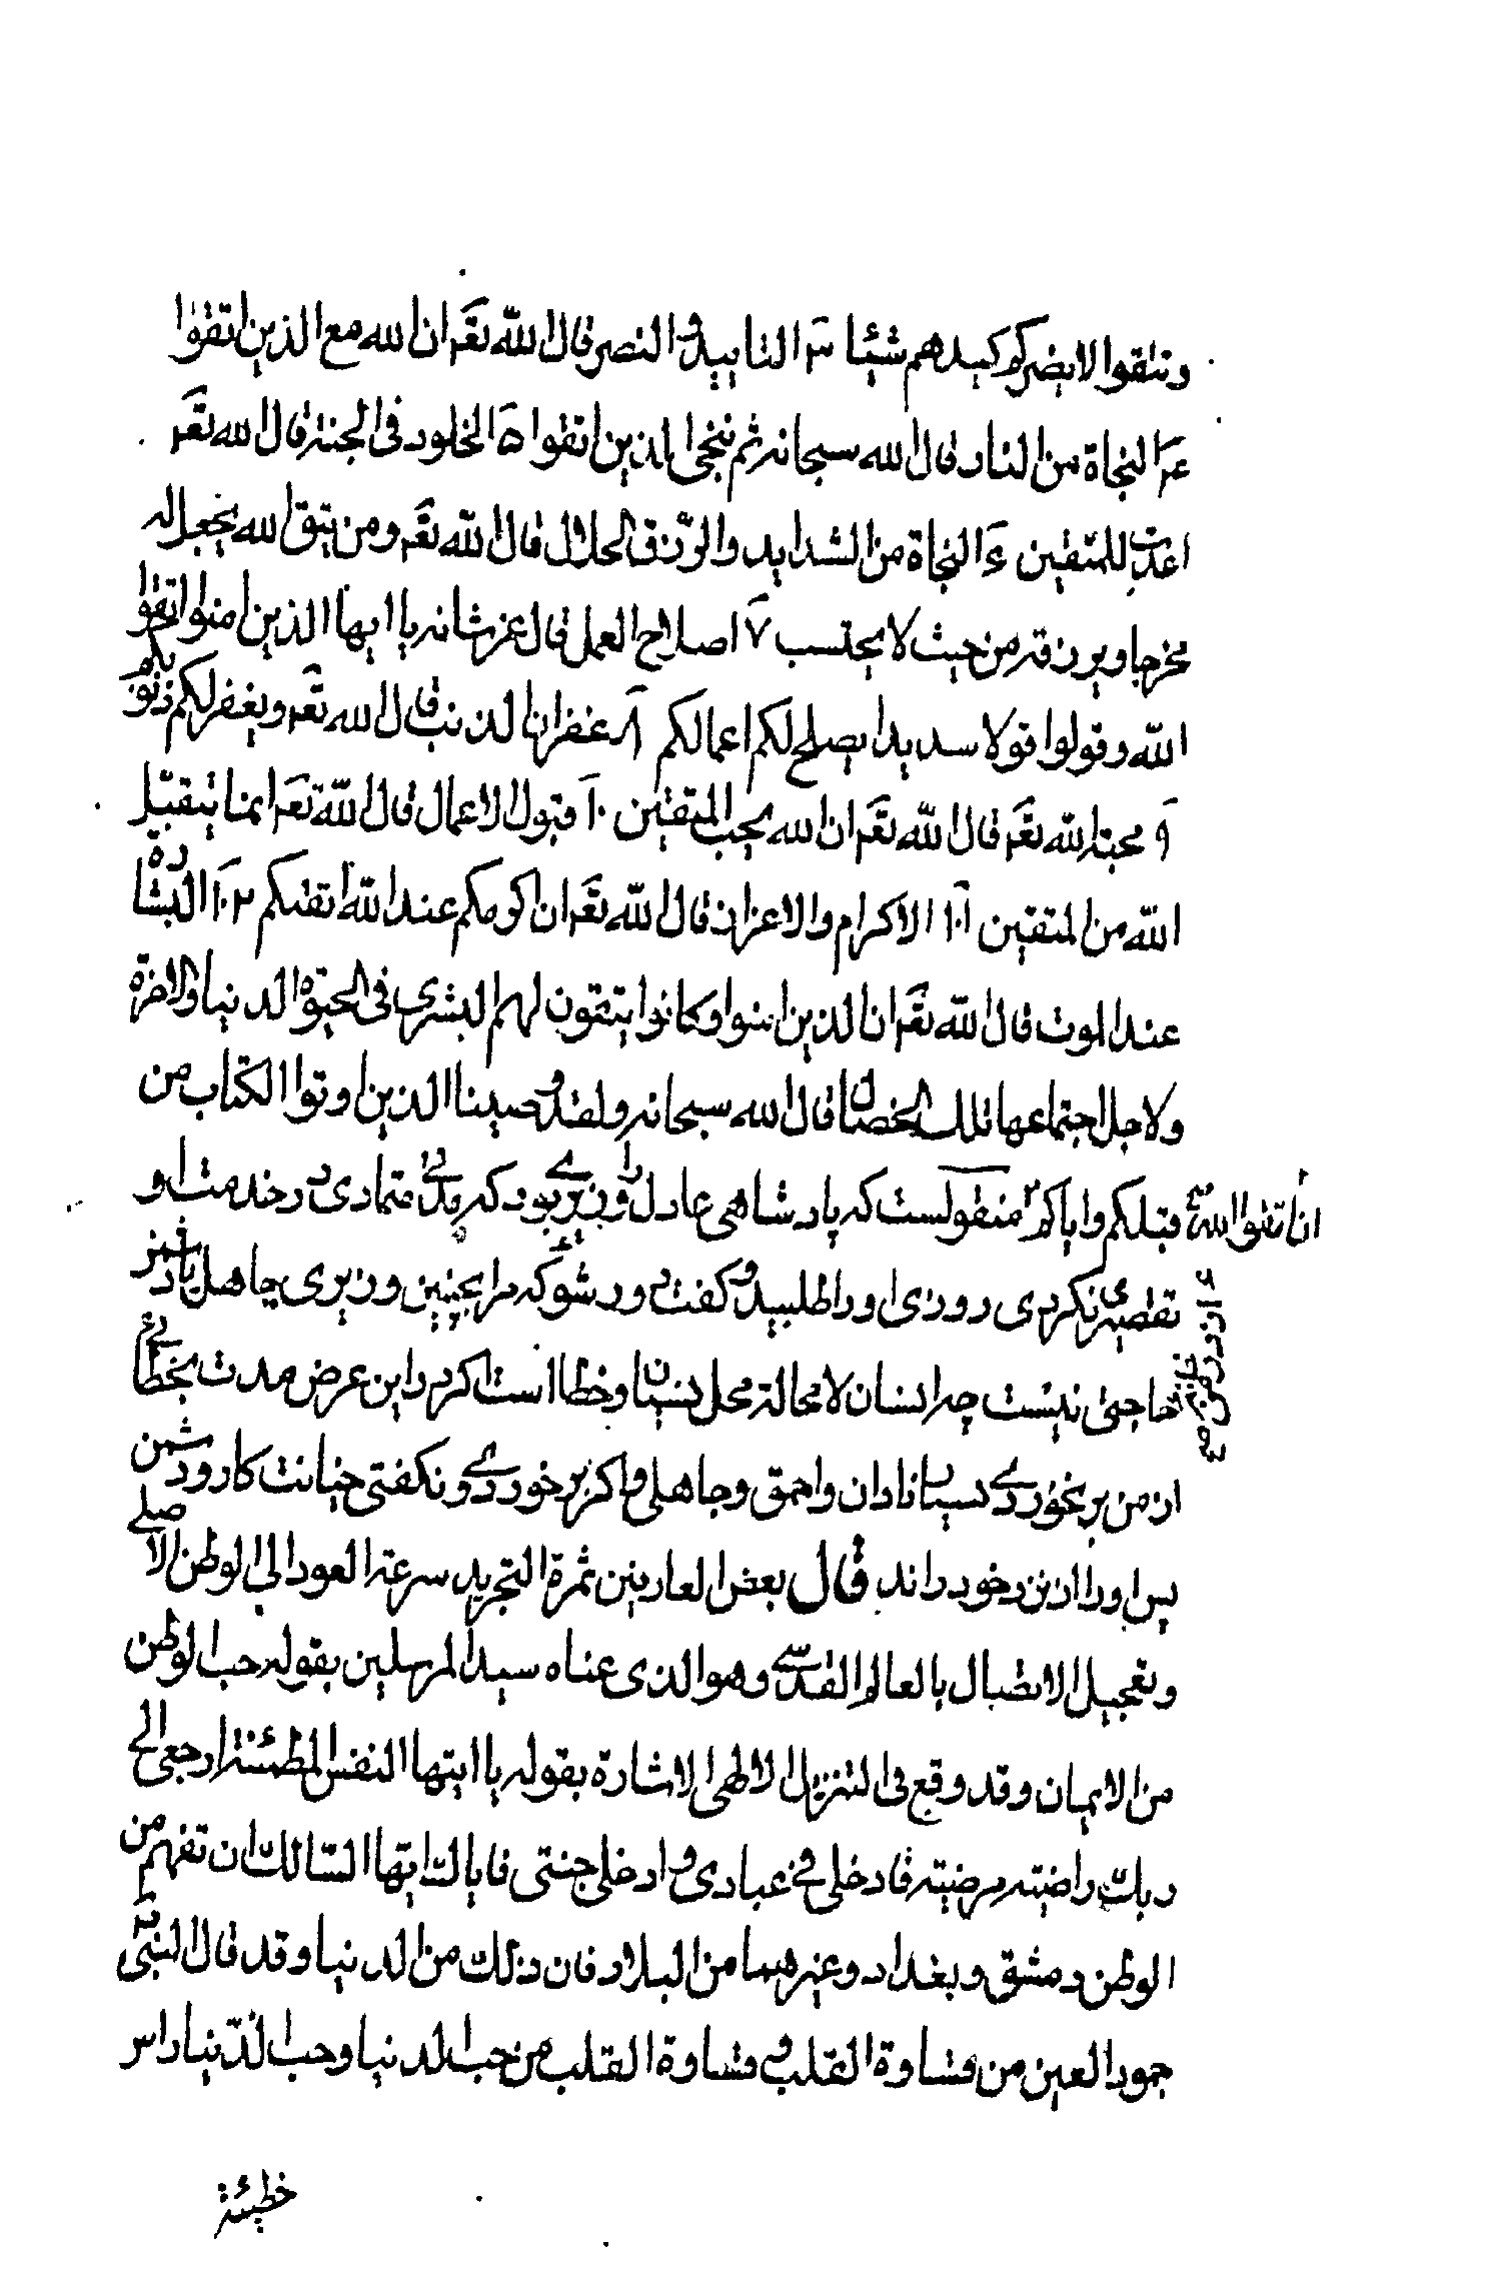 وتتقوا لا يضركم كيدهم شيئا ۳ التاييد والنصر قال الله تعم ان الله مع الذين اتقوا
۴ النجاة من النار قال الله سبحانه ثم ننجی الذين اتقوا ۵ الخلود فی الجنة قال الله تعم
اعدت للمتقين ۶ النجاة من الشدايد والرزق الحلال قال الله تعم ومن يتق الله يجعل له
مخرجا ويرزقه من حيث لا يحتسب ۷ اصلاح العمل قال عز شانه يا ايها الذين امنوا اتقوا
الله وقولوا قولا سديدا يصلح لكم اعمالكم ۸ غفران الذنب قال الله تعم ويغفر لكم ذنوبكم
۹ محبة الله تعم قال الله تعم ان الله يحب المتقين ۱۰ قبول الاعمال قال الله تعم انما يتقبل
الله من المتقين ۱۱ الاكرام والاعزاز قال الله تعم ان اكرمكم عند الله اتقيكم ۱۲ البشارة
عند الموت قال الله تعم ان الذين امنوا وكانوا يتقون لهم البشری فی الحيوة الدنيا والاخرة
ولاجل اجتماعها تلك الخصال قال الله سبحانه ولقد وصينا الذين اوتوا الكتاب من
قبلكم واياكم ان اتقوا الله منقولست كه پادشاهی عادل را وزيری بود كه مدتی متمادی در خدمت او
تقصيری نكردی روزی او را طلبيد و كفت دور شو كه مرا بچنين وزيری جاهل يا دشمن
حاجتی نيست چه انسان لا محالة محل نسيان و خطا است اكر در اين عرض مدت بخطائی
از من بر نخوردی بسيار نادان و احمق و جاهلی و اكر بر خوردی و نكفتی خيانت كار و دشمن
پس او را از نزد خود راند قال بعض العارفين ثمرة التجريد سرعة العود الی الوطن الاصلی
وتعجيل الاتصال بالعالم القدسی وهو الذی عناه سيد المرسلين بقوله حب الوطن
من الايمان وقد وقع فی التنزيل الالهی الاشارة بقوله يا ايتها النفس المطمئنة ارجعی الی
ربك راضية مرضية فادخلی فی عبادی وادخلی جنتی فاياك ايها السالك ان تفهم من
الوطن دمشق وبغداد وغيرهما من البلاد فان ذلك من الدنيا وقد قال النبی ص
جمود العين من قساوة القلب وقساوة القلب من حب الدنيا وحب الدنيا راس
خطيئة